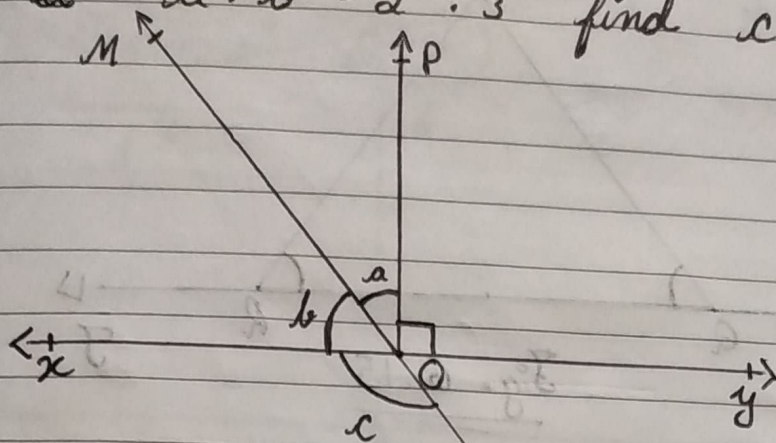 a : b = 2 : 3 find c
M
P
a
b
X
O
y
c